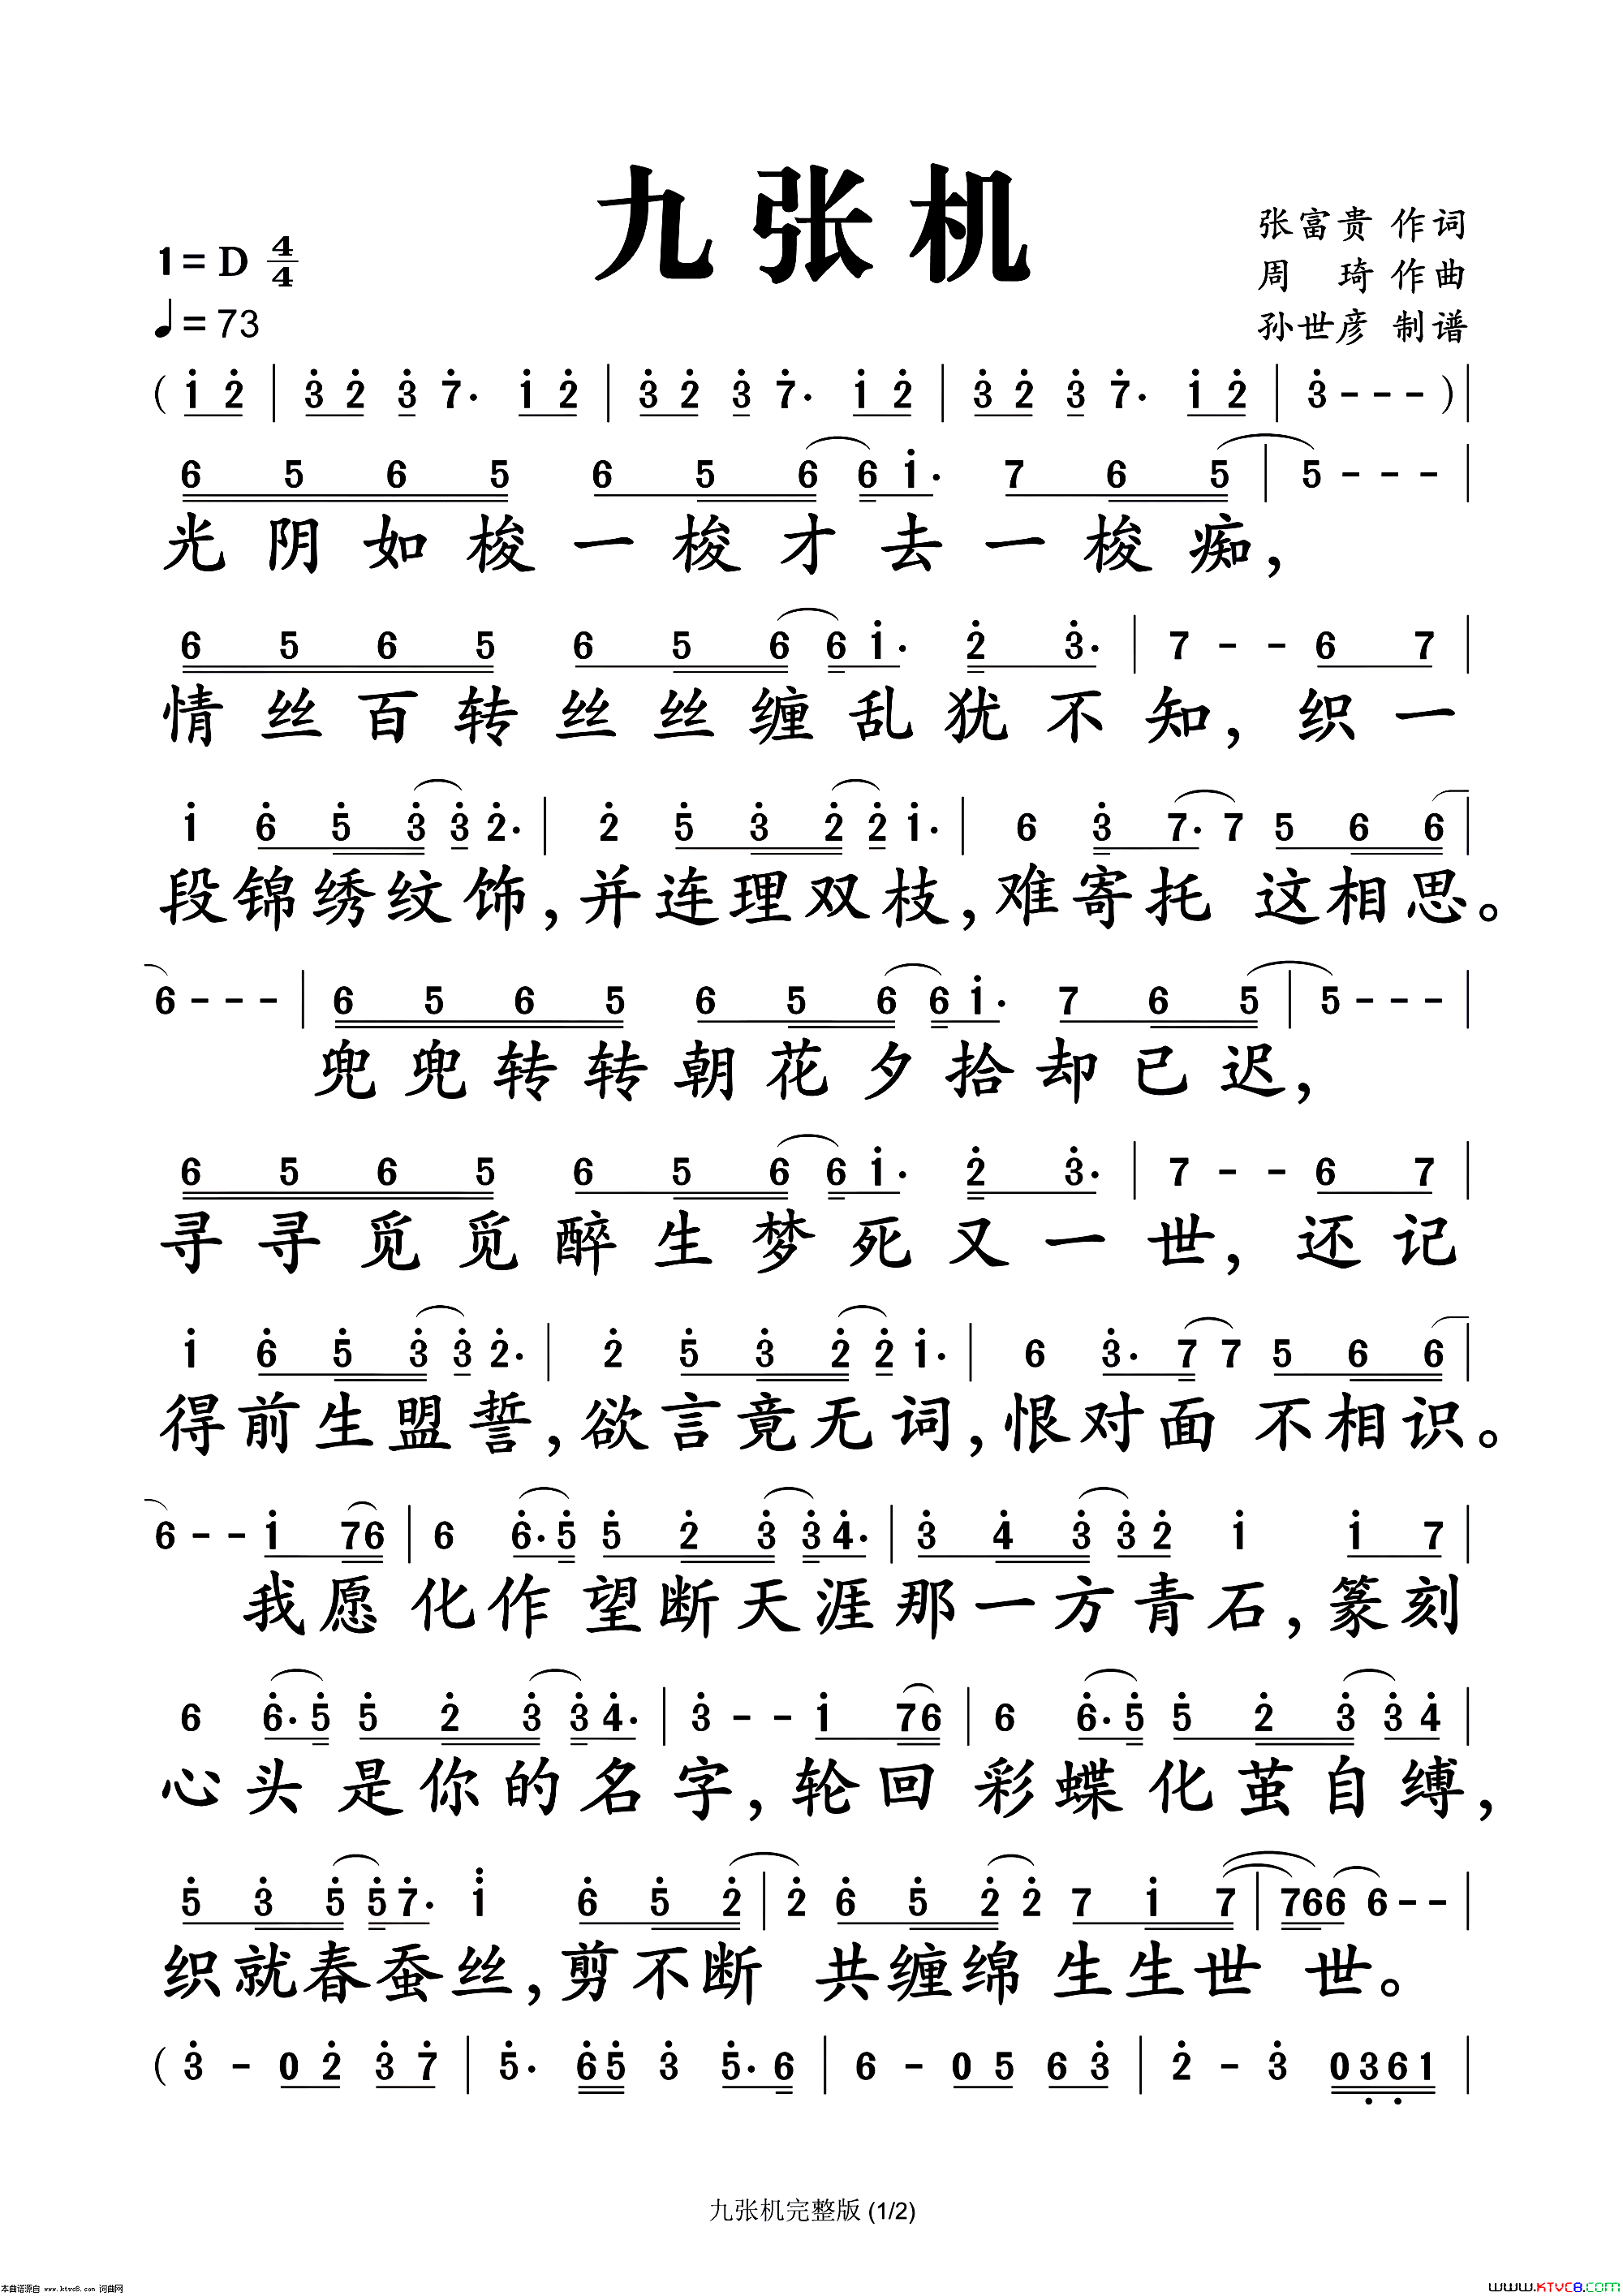 九张机
1=D 4/4
♩=73
张富贵 作词
周 琦 作曲
孙世彦 制谱
( i̇ 2̇ | 3̇ 2̇ 3̇ 7̇. i̇ 2̇ | 3̇ 2̇ 3̇ 7̇. i̇ 2̇ | 3̇ 2̇ 3̇ 7̇. i̇ 2̇ | 3̇ - - - ) |
6 5 6 5 6 5 6 6 i̇. 7 6 5 | 5 - - - |
光阴如梭一梭才去一梭痴，
6 5 6 5 6 5 6 6 i̇. 2̇ 3̇. | 7 - - 6 7 |
情丝百转丝丝缠乱犹不知，织一
i̇ 6̇ 5̇ 3̇ 3̇ 2̇. | 2̇ 5̇ 3̇ 2̇ 2̇ i̇. | 6 3̇ 7. 7 5 6 6 |
段锦绣纹饰，并连理双枝，难寄托 这相思。
6 - - - | 6 5 6 5 6 5 6 6 i̇. 7 6 5 | 5 - - - |
兜兜转转朝花夕拾却已迟，
6 5 6 5 6 5 6 6 i̇. 2̇ 3̇. | 7 - - 6 7 |
寻寻觅觅醉生梦死又一世，还记
i̇ 6̇ 5̇ 3̇ 3̇ 2̇. | 2̇ 5̇ 3̇ 2̇ 2̇ i̇. | 6 3̇. 7 7 5 6 6 |
得前生盟誓，欲言竟无词，恨对面 不相识。
6 - - i̇ 7 6 | 6 6̇. 5̇ 5̇ 2̇ 3̇ 3̇ 4̇. | 3̇ 4̇ 3̇ 3̇ 2̇ i̇ i̇ 7 |
我愿化作望断天涯那一方青石，篆刻
6 6̇. 5̇ 5̇ 2̇ 3̇ 3̇ 4̇. | 3̇ - - i̇ 7 6 | 6 6̇. 5̇ 5̇ 2̇ 3̇ 3̇ 4̇ |
心头是你的名字，轮回彩蝶化茧自缚，
5̇ 3̇ 5̇ 5̇ 7̇. i̇ 6̇ 5̇ 2̇ | 2̇ 6̇ 5̇ 2̇ 2̇ 7 i̇ 7 | 7 6 6 6 - - |
织就春蚕丝，剪不断 共缠绵生生世 世。
( 3̇ - 0 2̇ 3̇ 7̇ | 5̇. 6̇ 5̇ 3̇ 5̇. 6 | 6 - 0 5 6 3̇ | 2̇ - 3̇ 0 3̣ 6̣ 1 |
九张机完整版 (1/2)
本曲谱源自 www.ktvc8.com 词曲网
WWW.KTVC8.COM